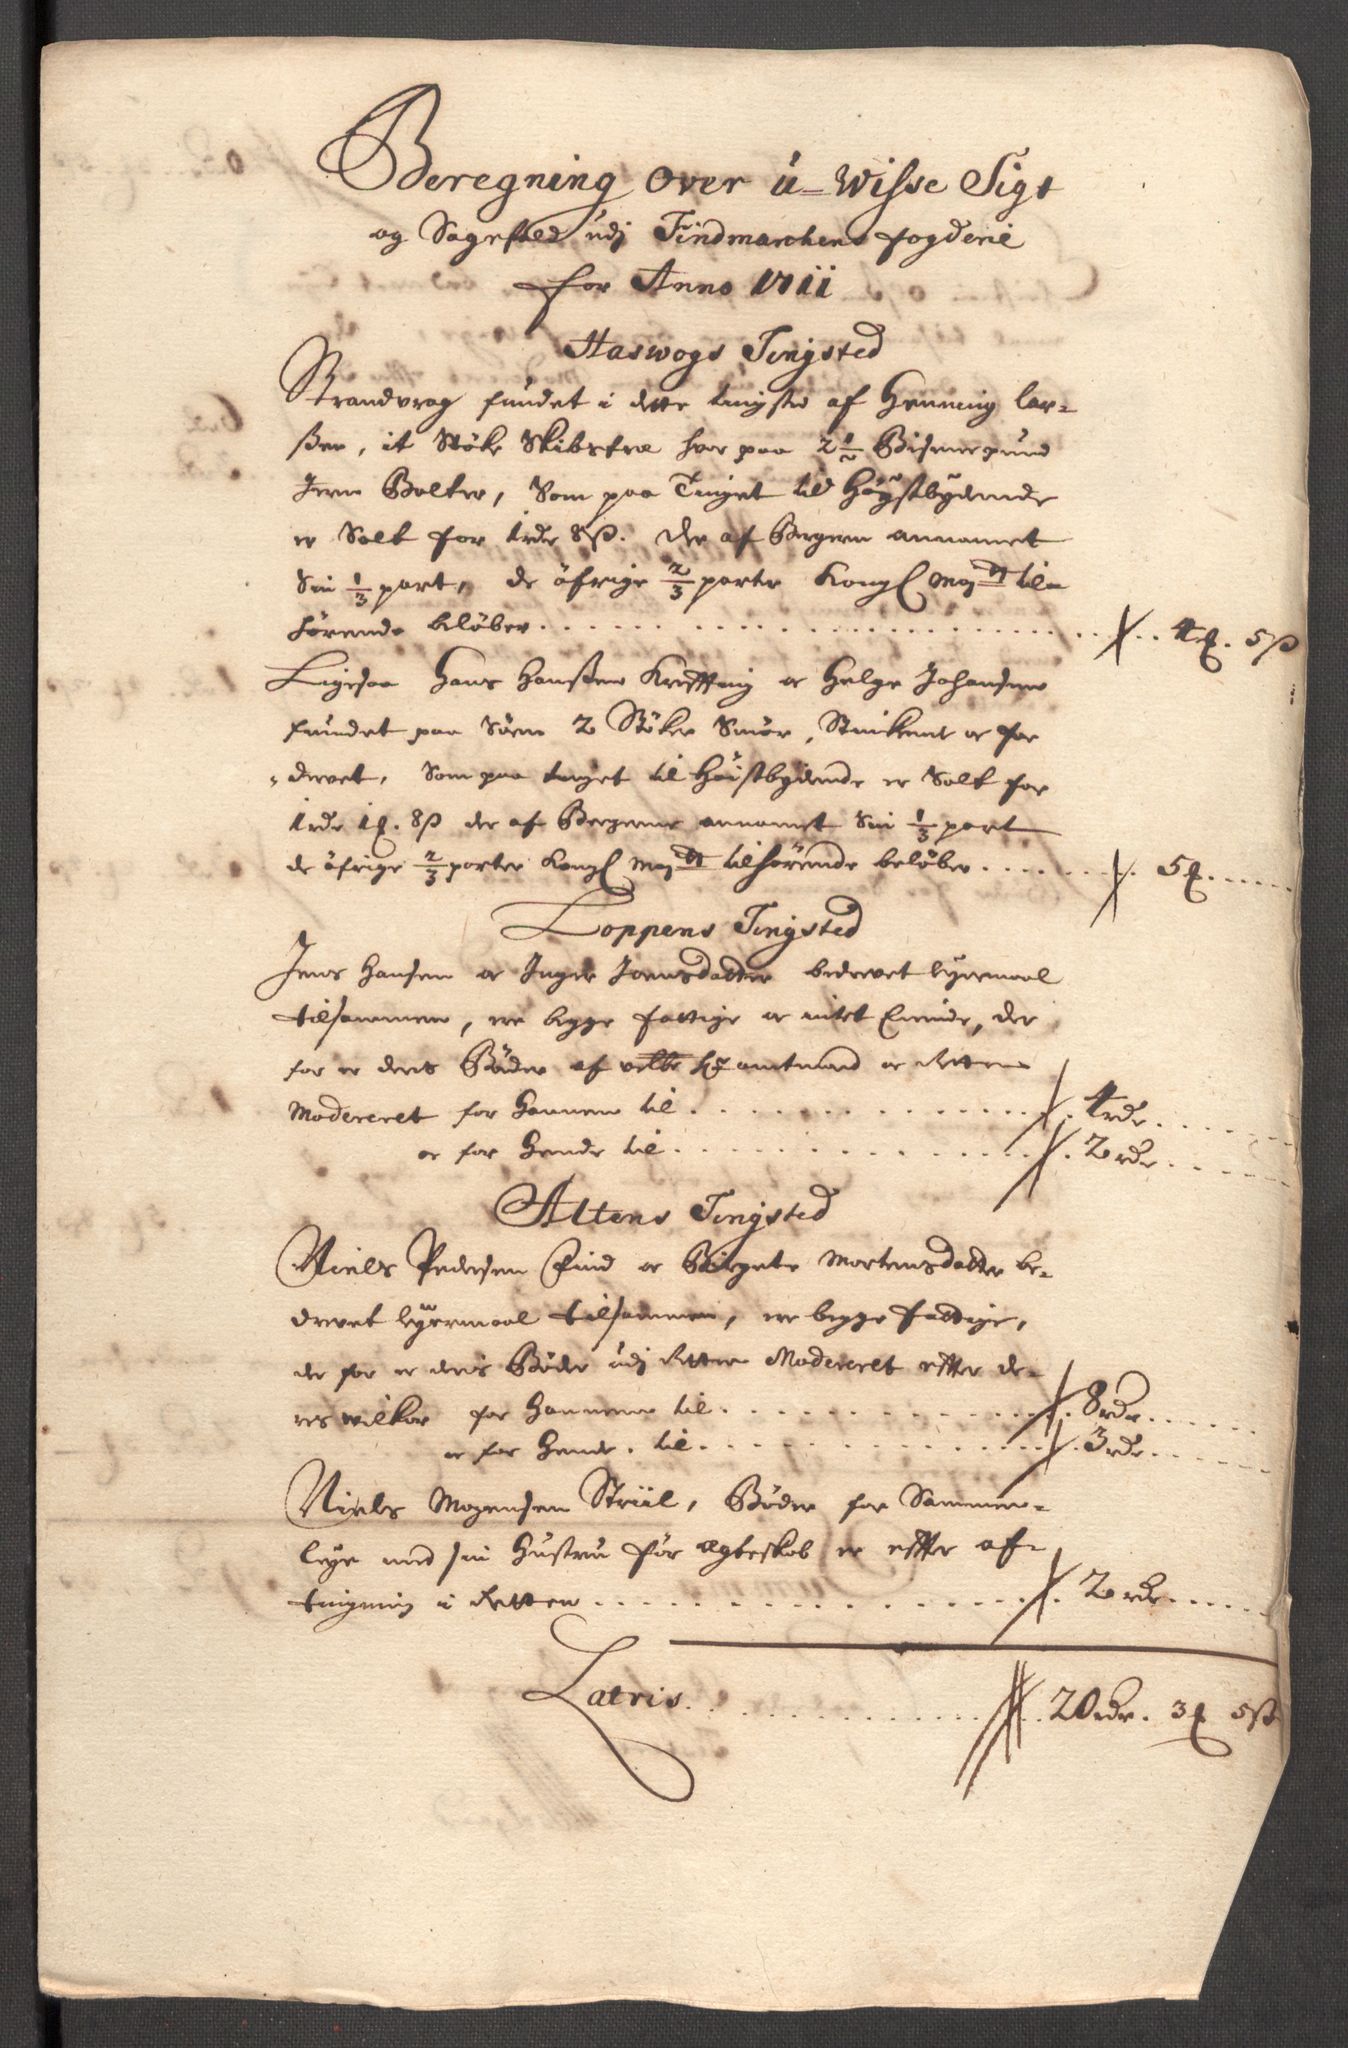 Beregning over u-wisse Sigt
og Sagefald udj Findmarchens fogderie
for Anno 1711
Haswogs Tingsted
Strandvrag fundet i dette tingsted af Henning Lar-
ßen, it Støke Skibstræ hvor paa 2 1/2 Bismerpund
Jern Bolter, Som paa Tinget til Høystbydende
er Solt for 1 rdr 8 ß. der af Bergern annamet
Sin 1/3 part, de öfrige 2/3 parter Kongl Maytt til-
hörende beløber . . . 4 ₰. 5 ß
Ligesaa Hans Hanßen Kreffting og Helge Johansen
fundet paa Söen 2 Støker Smör, Stinkent og for
dervet, Som paa tinget til Høistbydende er Solt for
1 rdr 1 ₰. 8 ß der af Bergerne annamet Sin 1/3 part
de öfrige 2/3 parter Kongl Maytt tilhörende beløber . . . 5 ₰ . . .
Loppens Tingsted
Jens Hansen og Inger Joensdatter bedrevet leyermaal
tilsammen, ere begge fattige og intet Eiende, der
for er deris Bøder af velbe Hr amtmand og Retten
Modereret for Hannem til . . . 4 rdr . . .
og for Hende til . . . 2 rdr . . .
Altens Tingsted
Niels Pedersen Find og Birgete Mortensdatter be-
drevet leyermaal tilsammen, ere begge fattige,
der for er deris Bøder udj Retten Modereret effter de-
res wilkor for Hannem til . . . 8 rdr . . .
og for Hende til . . . 3 rdr . . .
Niels Mogensen Striil, Bøder for Sammen-
leye med sin Hustru før ægteskab er effter af-
tingning i Retten . . . 2 rdr . . .
Lateris . . . 20 rdr. 3 ₰ 5 ß